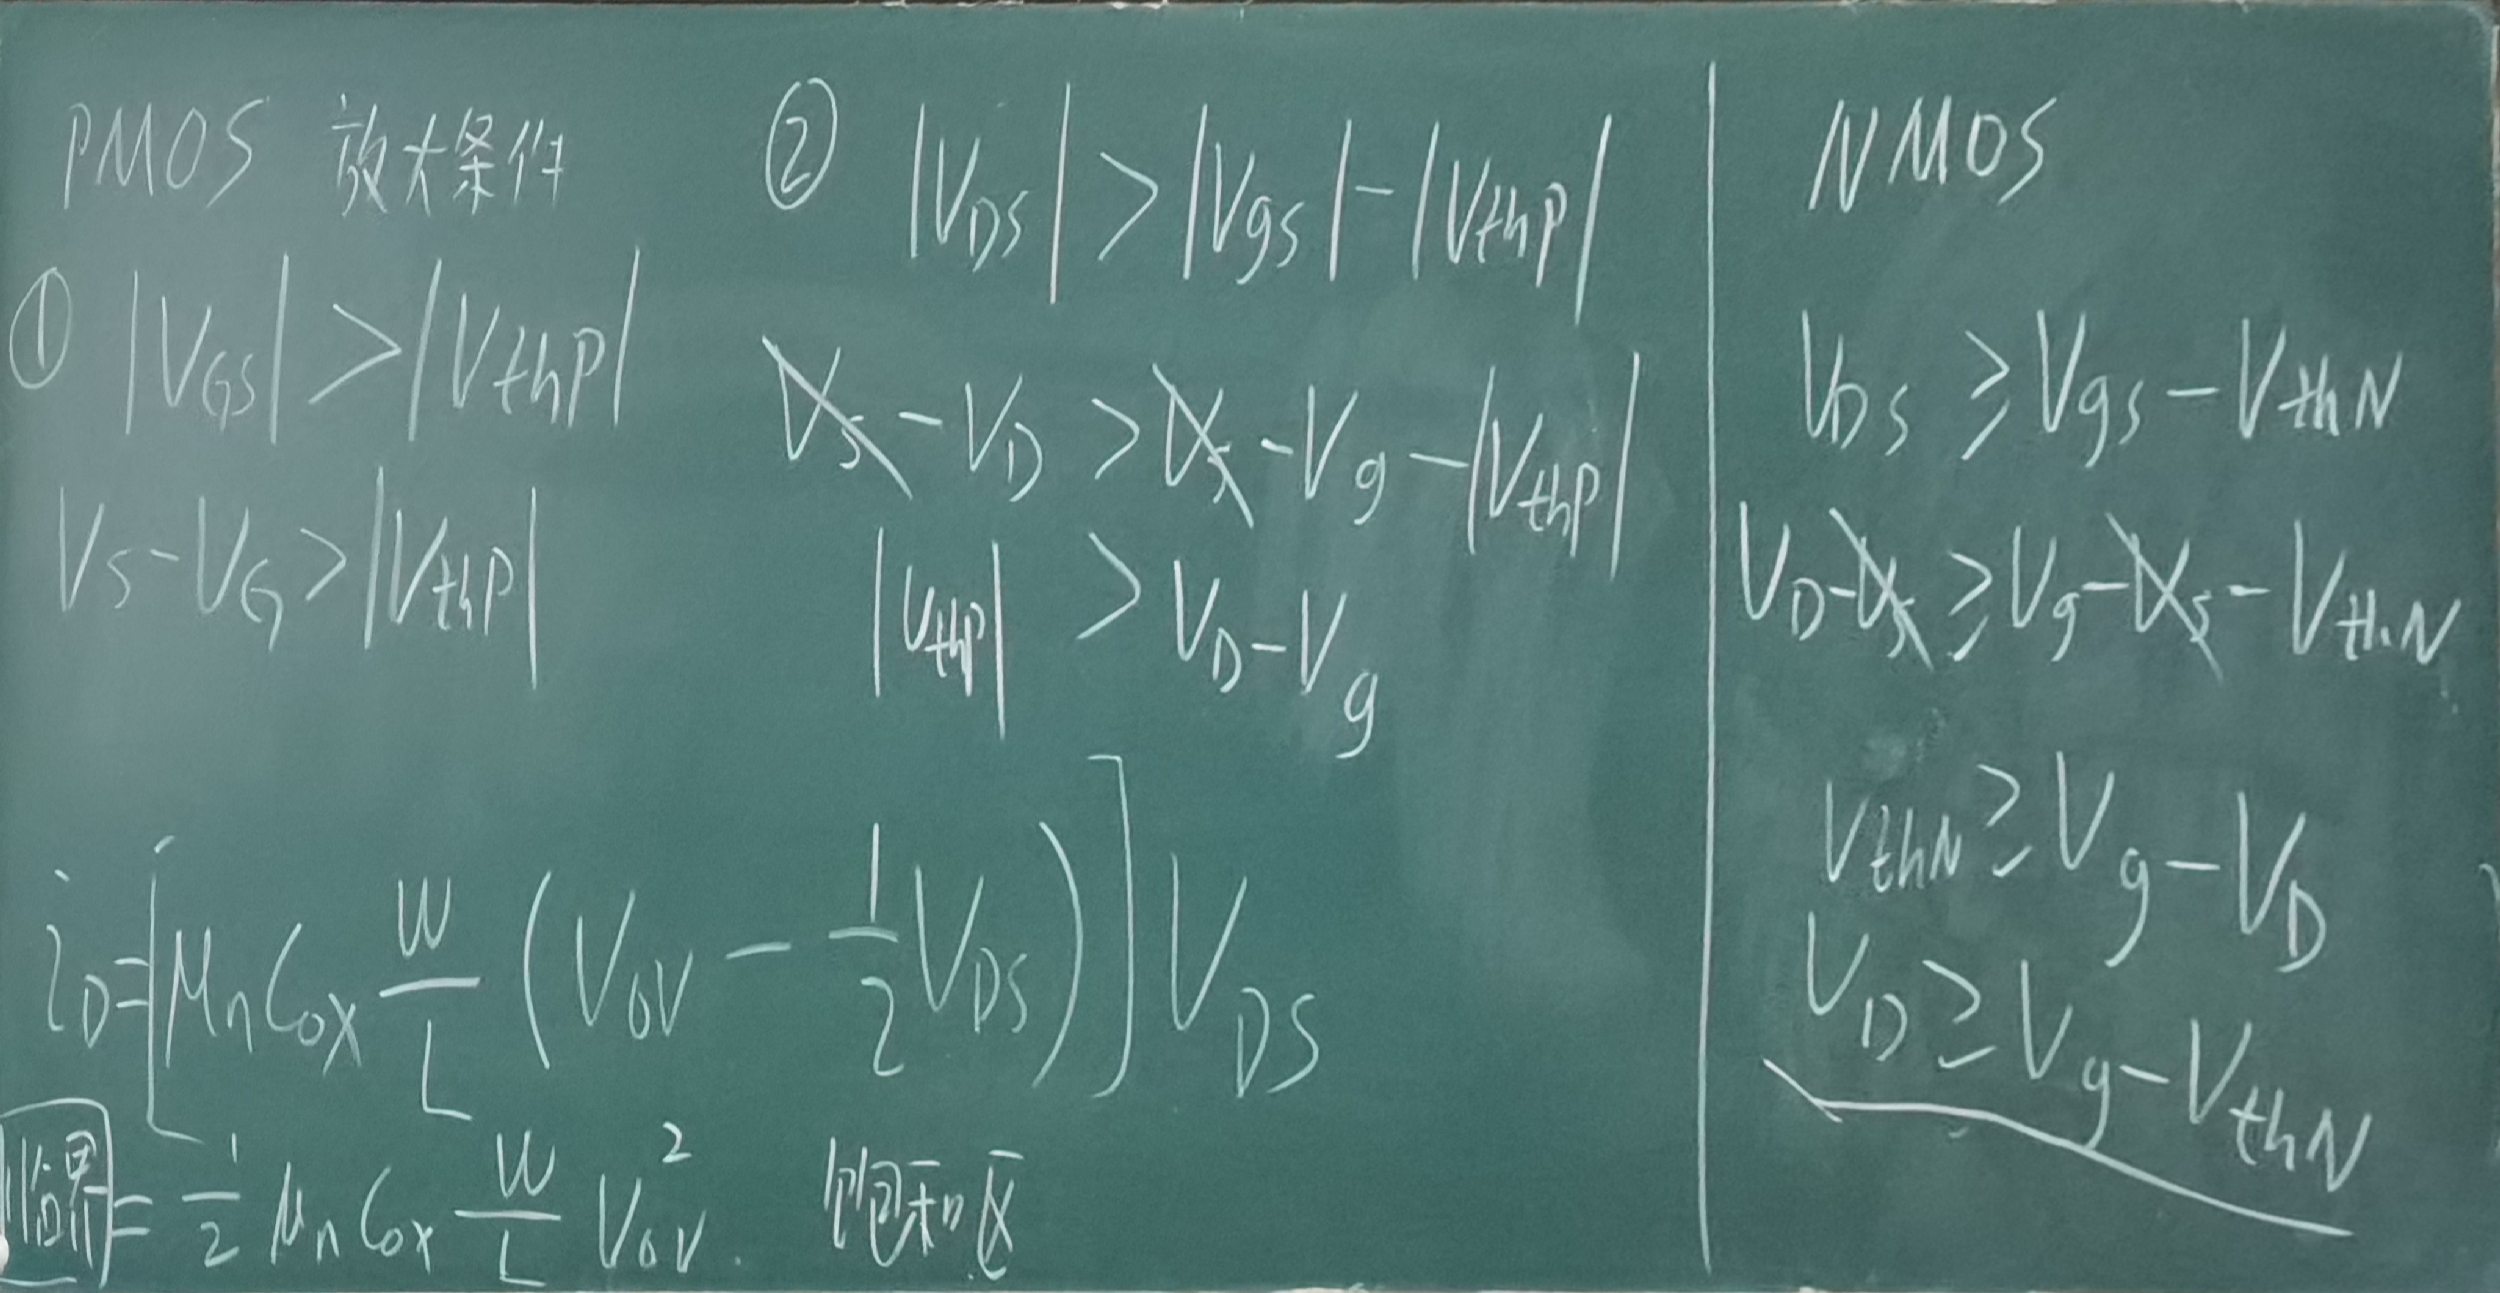 PMOS 放大条件
① |V_GS| > |V_thP|
V_S - V_G > |V_thP|
② |V_DS| > |V_gs| - |V_thP|
V_S - V_D > V_S - V_g - |V_thP|
|V_thP| > V_D - V_g
i_D = [μ_n C_ox W/L (V_OV - 1/2 V_DS)] V_DS
临界 = 1/2 μ_n C_ox W/L V_OV^2. 饱和区
NMOS
V_DS ≥ V_gs - V_thN
V_D - V_S ≥ V_g - V_S - V_thN
V_thN ≥ V_g - V_D
V_D ≥ V_g - V_thN